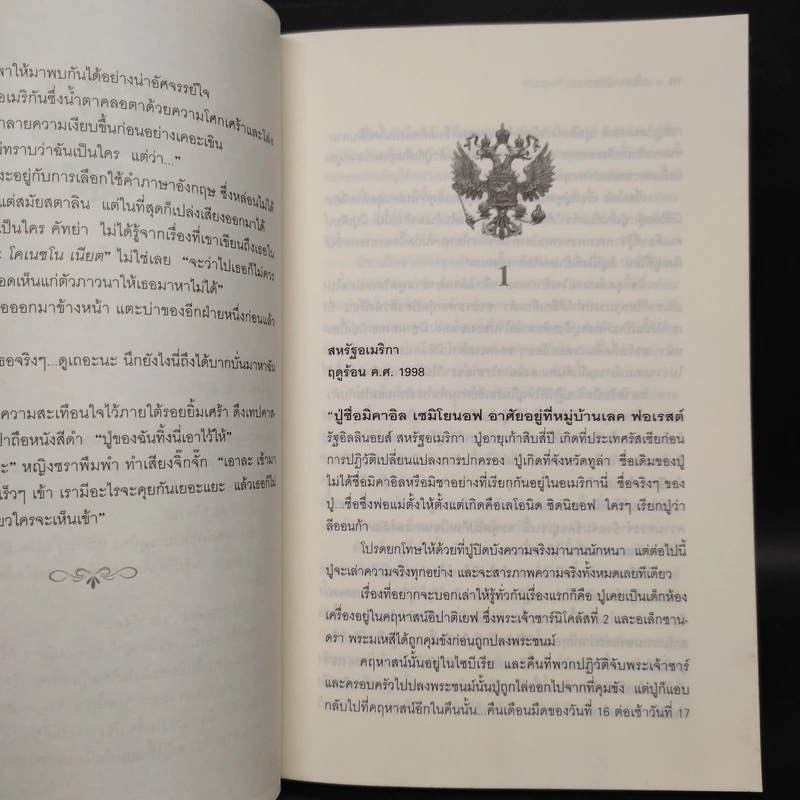 พาให้มาพบกันได้อย่างน่าอัศจรรย์ใจ
อเมริกันซึ่งน้ำตาคลอตาด้วยความโศกเศร้าและโล่ง
ลายความเงียบขึ้นก่อนอย่างเคอะเขิน
ทราบว่าฉันเป็นใคร แต่ว่า...”
งะอยู่กับการเลือกใช้คำภาษาอังกฤษ ซึ่งหล่อนไม่ได้
แต่สมัยสตาลิน แต่ในที่สุดก็เปล่งเสียงออกมาได้
เป็นใคร คัทย่า ไม่ได้รู้จากเรื่องที่เขาเขียนถึงเธอใน
โคเนชโน เนียต” ไม่ใช่เลย “จะว่าไปเธอก็ไม่ควร
อดเห็นแก่ตัวภาวนาให้เธอมาหาไม่ได้”
อออกมาข้างหน้า แตะบ่าของอีกฝ่ายหนึ่งก่อนแล้ว
ธอจริงๆ...ดูเถอะนะ นึกยังไงนี่ถึงได้บากบั่นมาหาฉัน
ความสะเทือนใจไว้ภายใต้รอยยิ้มเศร้า ดึงเทปคาส-
ปาถือหนังสีดำ “ปู่ของฉันทิ้งนี่เอาไว้ให้”
ะ” หญิงชราพึมพำ ทำเสียงจิ๊กจั๊ก “เอาละ เข้ามา
เร็วๆ เข้า เรามีอะไรจะคุยกันเยอะแยะ แล้วเธอก็ไม่
ยวใครจะเห็นเข้า”
1
สหรัฐอเมริกา
ฤดูร้อน ค.ศ. 1998
“ปู่ชื่อมิคาอิล เซมิโยนอฟ อาศัยอยู่ที่หมู่บ้านเลค ฟอเรสต์
รัฐอิลลินอยส์ สหรัฐอเมริกา ปู่อายุเก้าสิบสี่ปี เกิดที่ประเทศรัสเซียก่อน
การปฏิวัติเปลี่ยนแปลงการปกครอง ปู่เกิดที่จังหวัดทูล่า ชื่อเดิมของปู่
ไม่ได้ชื่อมิคาอิลหรือมิชาอย่างที่เรียกกันอยู่ในอเมริกานี่ ชื่อจริงๆ ของ
ปู่...ชื่อซึ่งพ่อแม่ตั้งให้ตั้งแต่เกิดคือเลโอนิด ซิดนิยอฟ ใครๆ เรียกปู่ว่า
ลีออนก้า
โปรดยกโทษให้ด้วยที่ปู่ปิดบังความจริงมานานนักหนา แต่ต่อไปนี้
ปู่จะเล่าความจริงทุกอย่าง และจะสารภาพความจริงทั้งหมดเลยทีเดียว
เรื่องที่อยากจะบอกเล่าให้รู้ทั่วกันเรื่องแรกก็คือ ปู่เคยเป็นเด็กห้อง
เครื่องอยู่ในคฤหาสน์อิปาติเยฟ ซึ่งพระเจ้าซาร์นิโคลัสที่ 2 และอเล็กซาน-
ดรา พระมเหสีได้ถูกคุมขังก่อนถูกปลงพระชนม์
คฤหาสน์นั้นอยู่ในไซบีเรีย และคืนที่พวกปฏิวัติจับพระเจ้าซาร์
และครอบครัวไปปลงพระชนม์นั้นปู่ถูกไล่ออกไปจากที่คุมขัง แต่ปู่ก็แอบ
กลับไปที่คฤหาสน์อีกในคืนนั้น...คืนเดือนมืดของวันที่ 16 ต่อเช้าวันที่ 17